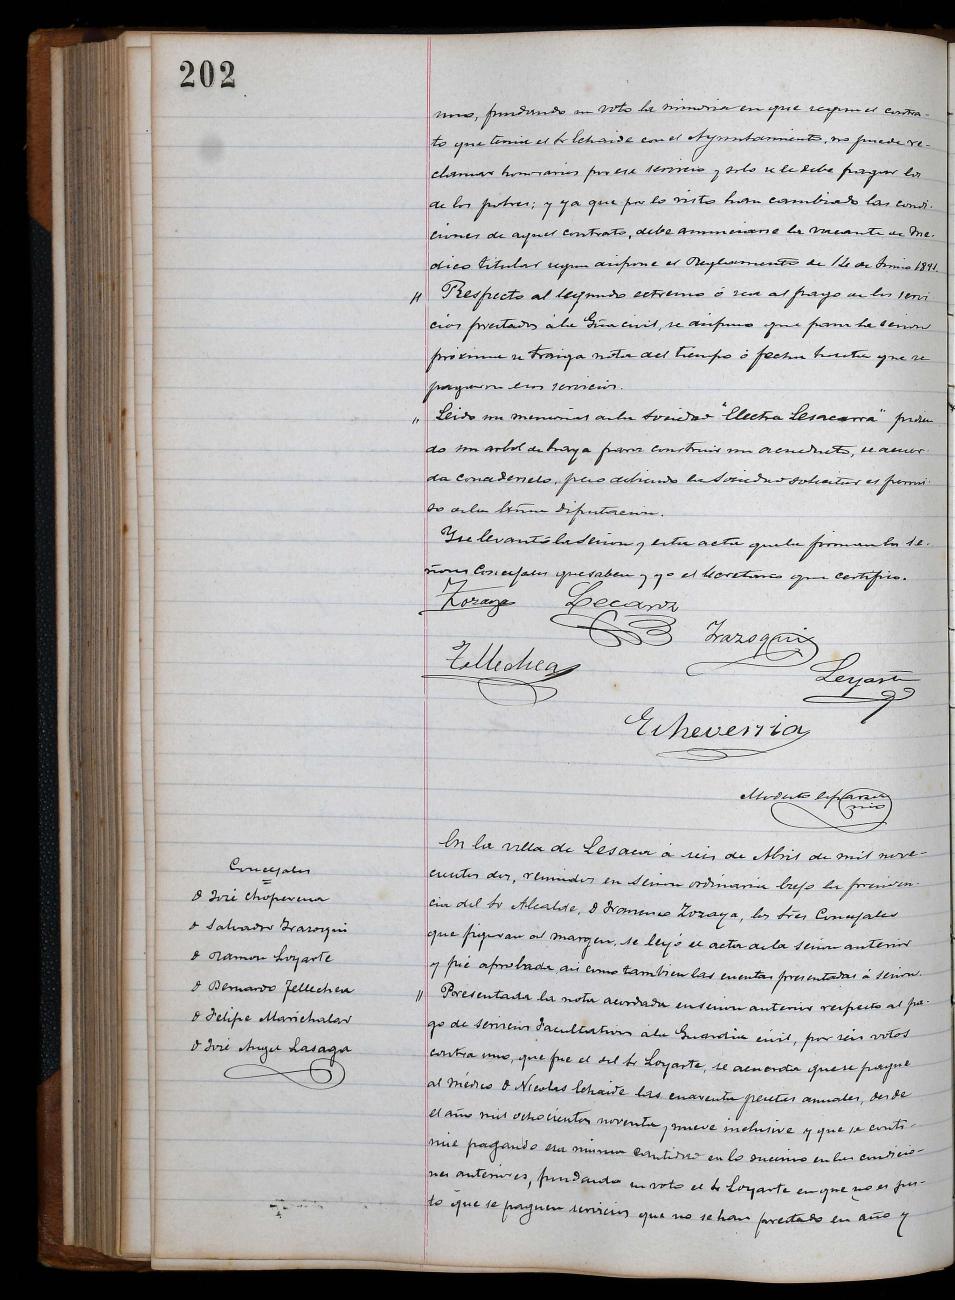 202
uno, fundando su voto la minoria en que segun el contra-
to que tenia el Sr Echaide con el Ayuntamiento, no puede re-
clamar honorarios por ese servicio y solo se le debe pagar los
de los pobres; y ya que por lo visto han cambiado las condi-
ciones de aquel contrato, debe anunciarse la vacante de Me-
dico titular segun dispone el Reglamento de 14 de Junio 1891.
" Respecto al segundo extremo ó sea al pago de los servi
cios prestados á la Gria civil, se dispuso que para la sesion
próxima se traiga nota del tiempo ó fecha hasta que se
pagaron esos servicios.
" Leido un memorial de la Sociedad "Electra Lesacarra" pidien
do un arbol de haya para construir un acueducto, se acuer-
da concederselo, pero debiendo la Sociedad solicitar el permi-
so de la Diputacion.
Y se levantó la sesion y esta acta que la forman los se-
ñores Concejales que saben y yo el Secretario que certifico.
Zozaya Lecaroz
Irazoqui
Tellechea
Loyarte
Echeverria
Modesto
En la villa de Lesaca á seis de Abril de mil nove-
cientos dos, reunidos en sesion ordinaria bajo la presiden-
cia del Sr Alcalde, D Francisco Zozaya, los Sres Concejales
que figuran al margen, se leyó el acta de la sesion anterior
y fué aprobada, asi como tambien las cuentas presentadas á sesion.
Concejales
D José Choperena
D Salvador Irazoqui
D Ramon Loyarte
D Bernardo Tellechea
D Felipe Marichalar
D José Angel Lasaga
" Presentada la nota acordada en sesion anterior respecto al pa-
go de servicios facultativos á la Guardia civil, por seis votos
contra uno, que fue el del Sr Loyarte, se acuerda que se pague
al médico D Nicolas Echaide las cuarenta pesetas anuales, desde
el año mil ochocientos noventa y nueve inclusive y que se conti-
núe pagando esa misma cantidad en lo sucesivo en las condicio-
nes anteriores, fundando su voto el Sr Loyarte en que no es jus-
to que se paguen servicios que no se han prestado en año y